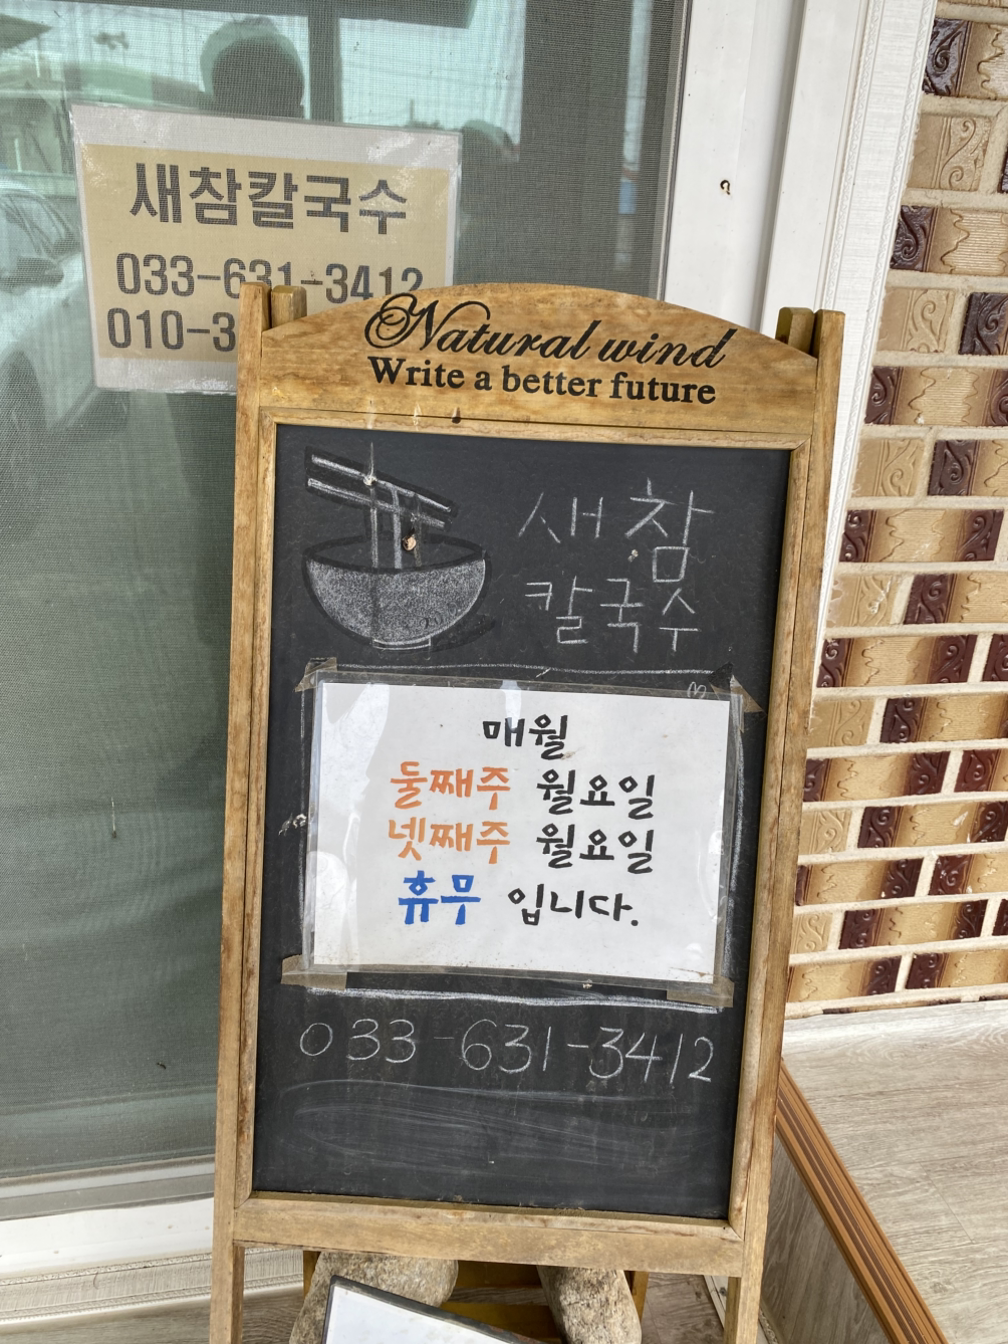 새참칼국수
033-631-3412
010-3
Natural wind
Write a better future
새참
칼국수
매월
둘째주 월요일
넷째주 월요일
휴무 입니다.
033-631-3412